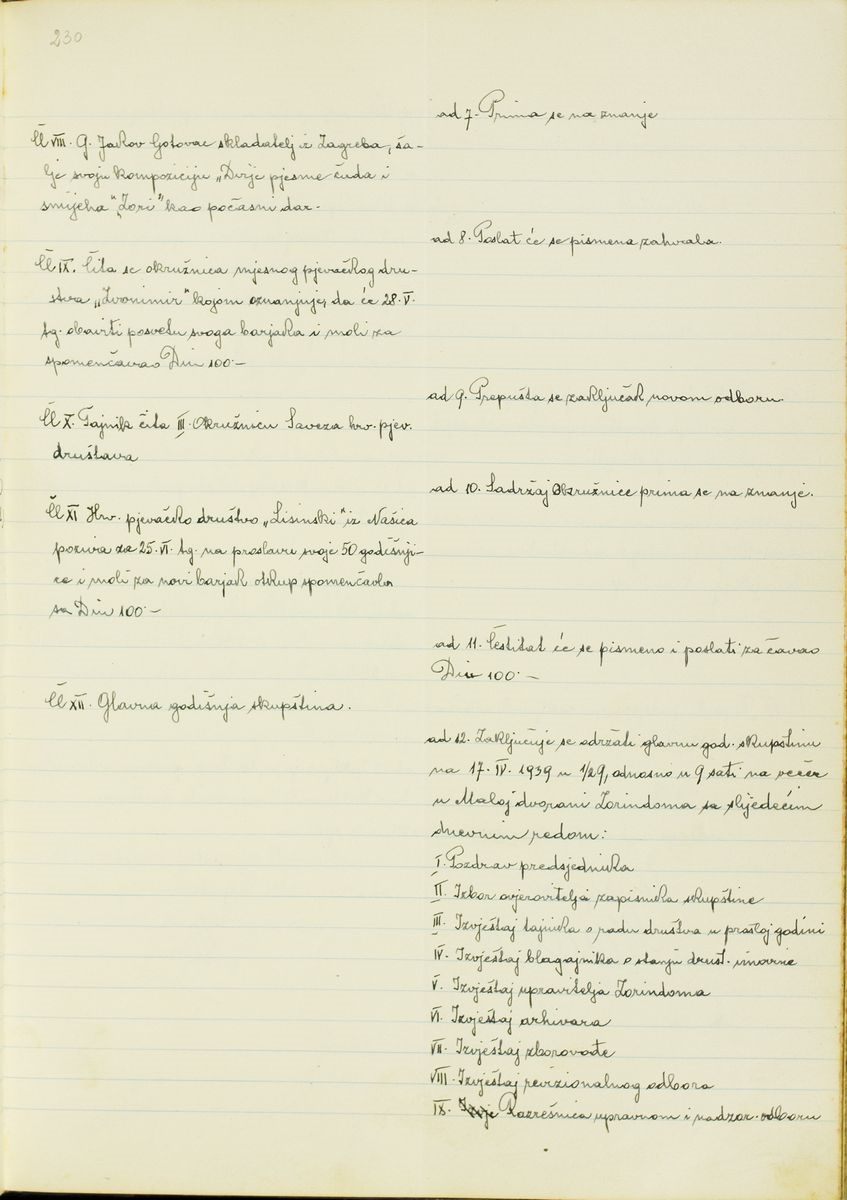 230
Čl VIII. G. Jakov Gotovac skladatelj iz Zagreba, ša-
lje svoju kompoziciju „Dvije pjesme čuda i
smijeha" „Zori" kao počasni dar.
Čl IX. Čita se okružnica mjesnog pjevačkog dru-
štva „Zvonimir" kojom oznanjuje, da će 28. V.
tg. obaviti posvetu svoga barjaka i moli za
spomenčavao Din 100.–
Čl X. Tajnik čita III. Okružnicu Saveza hrv. pjev.
društava
Čl XI Hrv. pjevačko društvo „Lisinski" iz Našica
poziva za 25. VI. tg. na proslavu svoje 50 godišnji-
ce i moli za novi barjak otkup spomenčavla
sa Din 100.–
Čl XII. Glavna godišnja skupština.
ad 7. Prima se na znanje
ad 8. Poslat će se pismena zahvala.
ad 9. Prepušta se zaključak novom odboru.
ad 10. Sadržaj Okružnice prima se na znanje.
ad 11. Čestitat će se pismeno i poslati za čavao
Din 100.–
ad 12. Zaključuje se održati glavnu god. skupštinu
na 17. IV. 1939 u 1/29, odnosno u 9 sati na večer
u Maloj dvorani Zorindoma sa slijedećim
dnevnim redom:
I. Pozdrav predsjednika
II. Izbor ovjerovitelja zapisnika skupštine
III. Izvještaj tajnika o radu društva u prošloj godini
IV. Izvještaj blagajnika o stanju društ. imovine
V. Izvještaj upravitelja Zorindoma
VI. Izvještaj arhivara
VII. Izvještaj zborovođe
VIII. Izvještaj revizionalnog odbora
IX. Razrešnica upravnom i nadzor. odboru